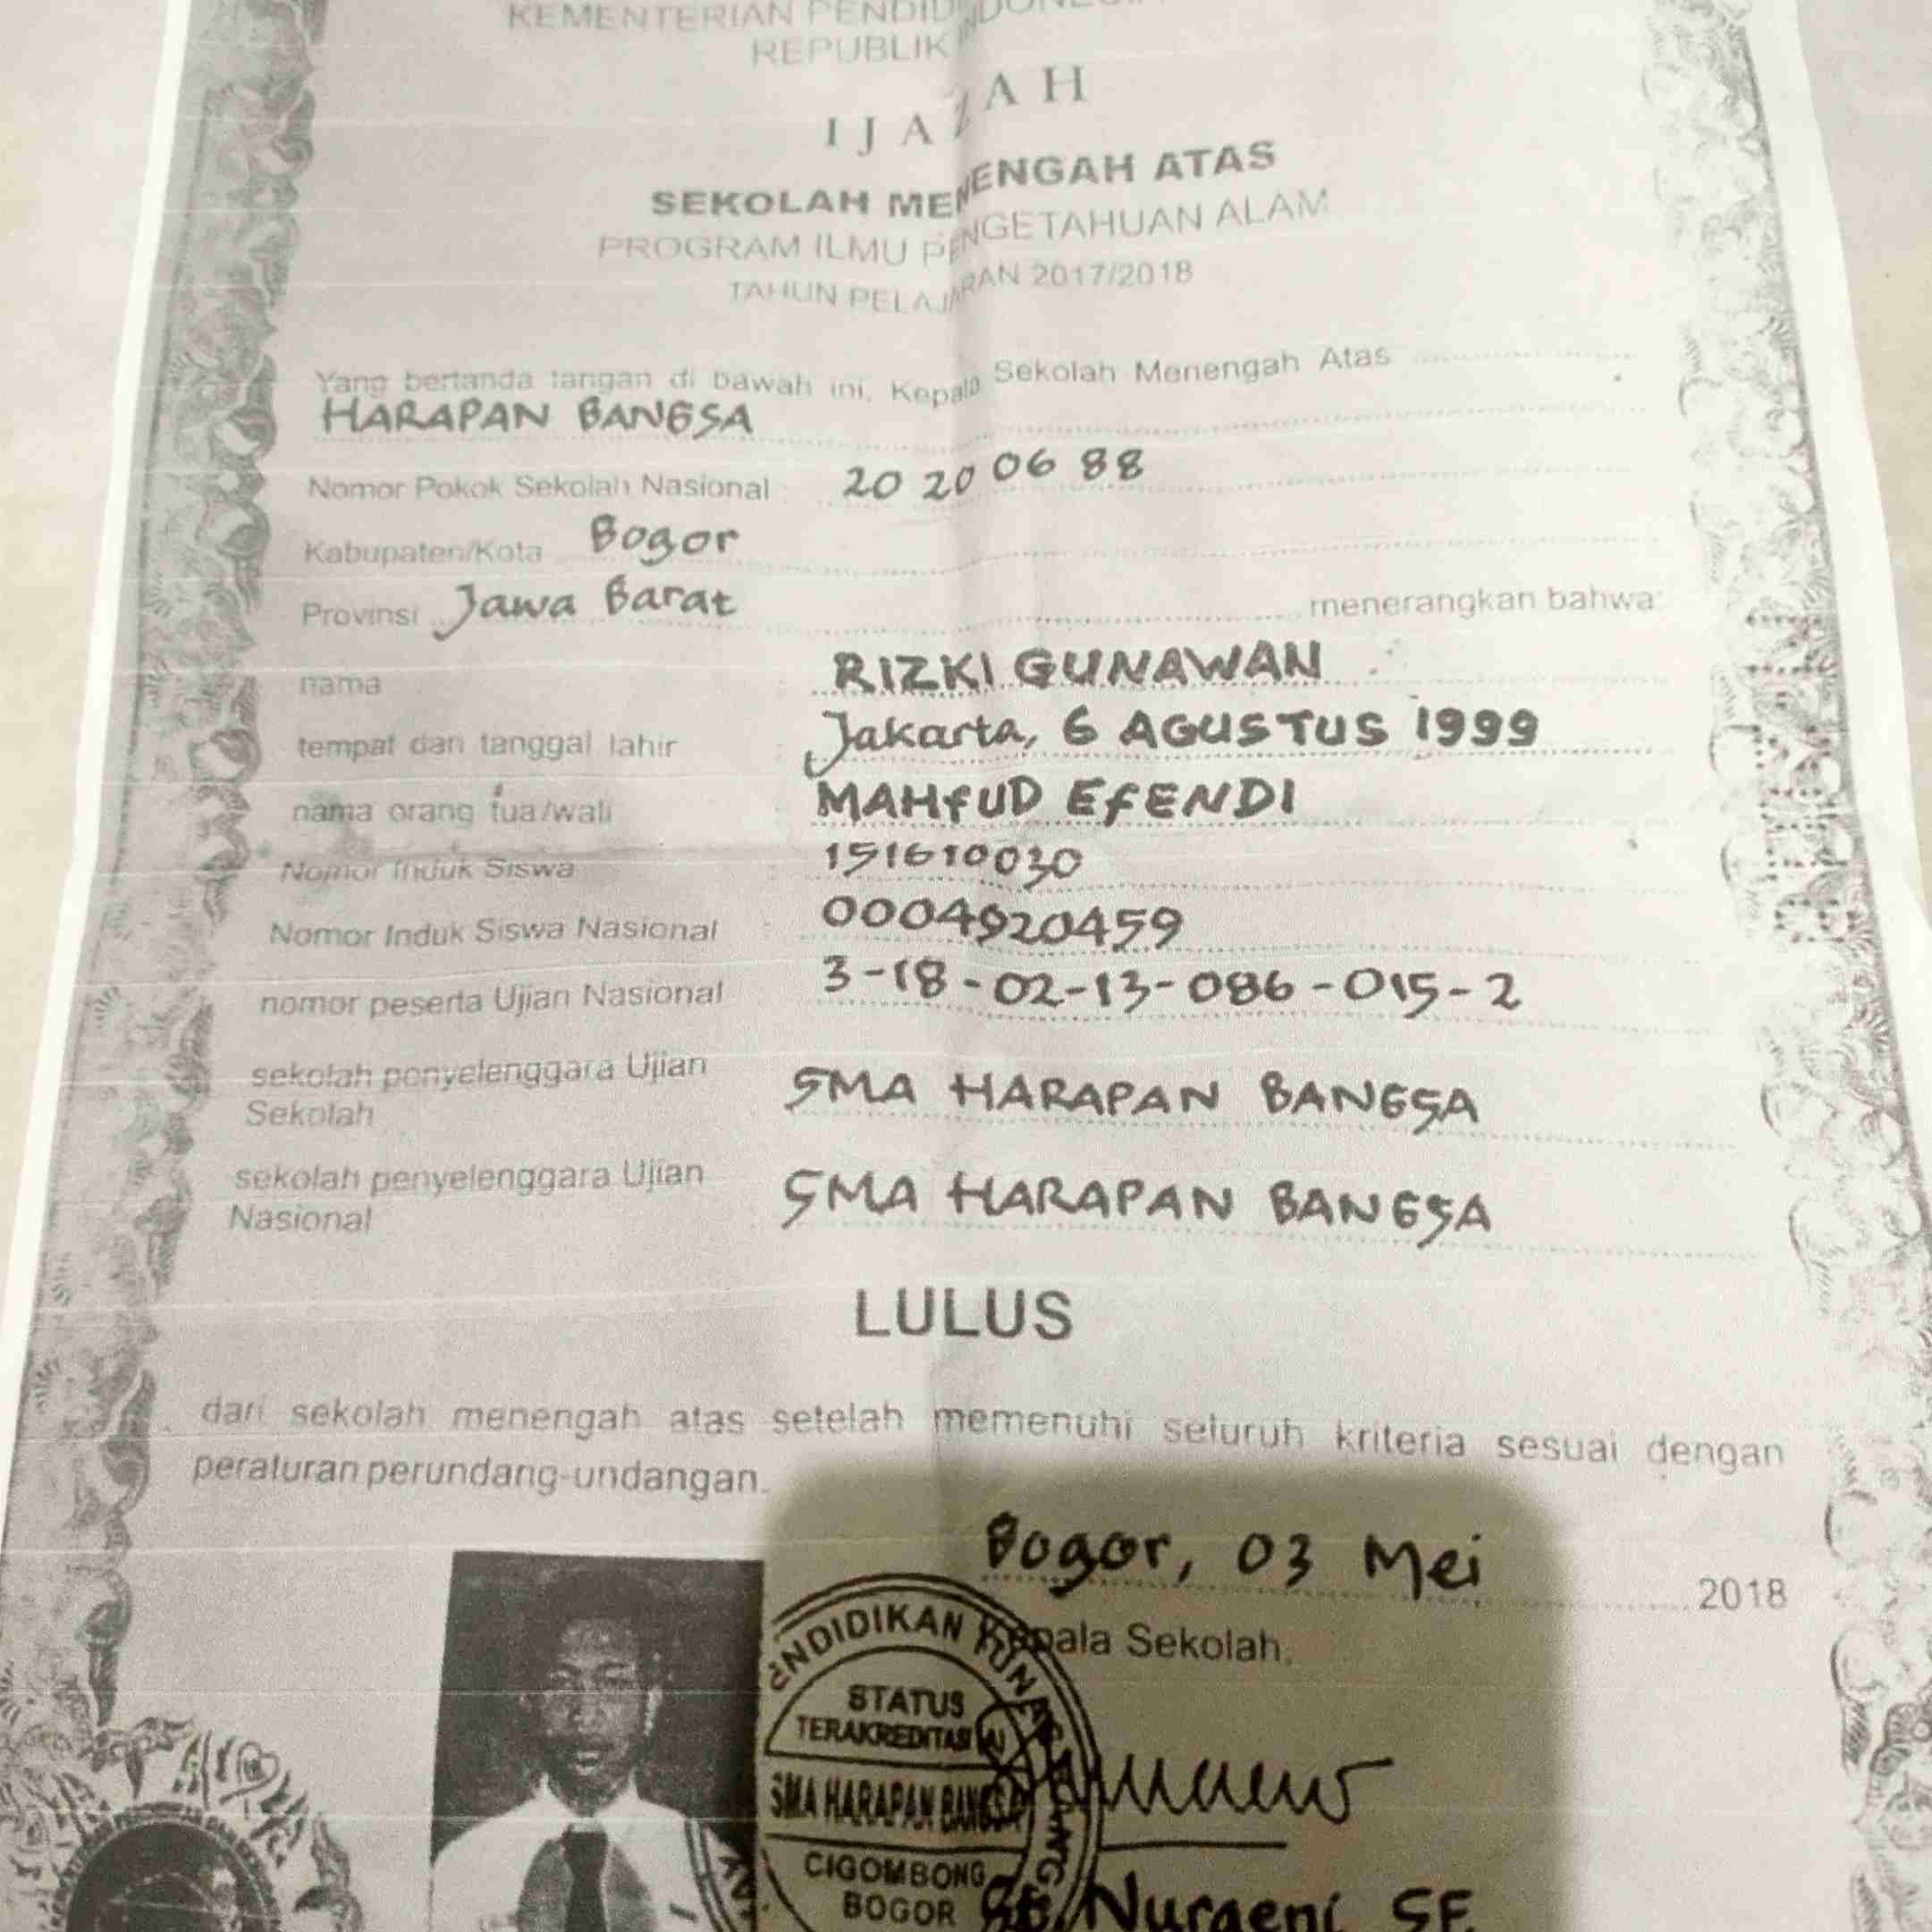 KEMENTERIAN
REPUBLIK
IJAZAH
SEKOLAH MENENGAH ATAS
PROGRAM ILMU PENGETAHUAN ALAM
TAHUN PELAJARAN 2017/2018
Yang bertanda tangan di bawah ini, Kepala Sekolah Menengah Atas
HARAPAN BANGSA
Nomor Pokok Sekolah Nasional : 20 20 06 88
Kabupaten/Kota Bogor
Provinsi Jawa Barat menerangkan bahwa:
nama : RIZKI GUNAWAN
tempat dan tanggal lahir : Jakarta, 6 AGUSTUS 1999
nama orang tua/wali : MAHFUD EFENDI
Nomor Induk Siswa : 151610030
Nomor Induk Siswa Nasional : 0004920459
nomor peserta Ujian Nasional 3-18-02-13-086-015-2
sekolah penyelenggara Ujian
Sekolah SMA HARAPAN BANGSA
sekolah penyelenggara Ujian
Nasional SMA HARAPAN BANGSA
LULUS
dari sekolah menengah atas setelah memenuhi seluruh kriteria sesuai dengan
peraturan perundang-undangan.
Bogor, 03 Mei 2018
Kepala Sekolah,
STATUS
TERAKREDITASI
SMA HARAPAN BANGSA
CIGOMBONG
BOGOR
Nuraeni SE